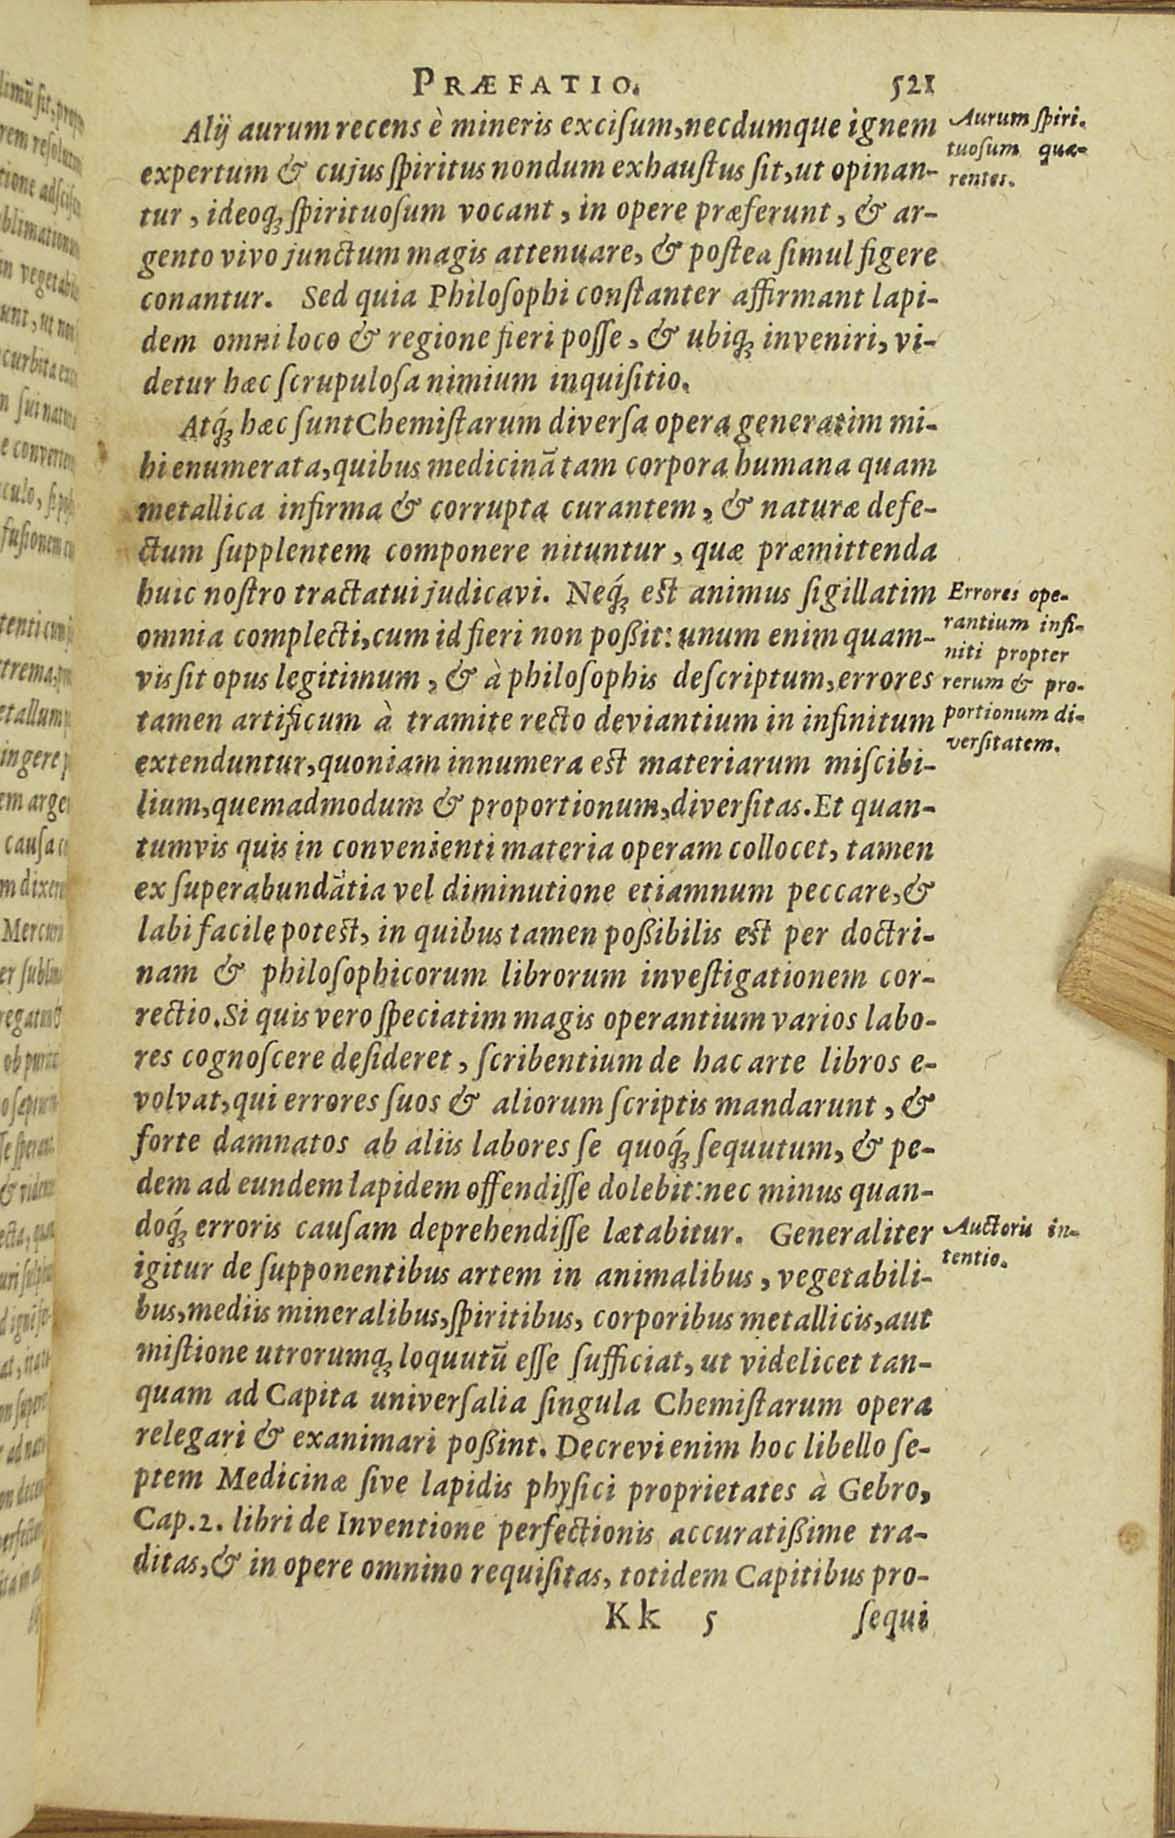 PRÆFATIO. 521
Alij aurum recens è mineris exciſum, necdumque ignem
expertum & cujus ſpiritus nondum exhauſtus ſit, ut opinan-
tur, ideoq́; ſpirituoſum vocant, in opere præferunt, & ar-
gento vivo junctum magis attenuare, & poſtea ſimul figere
conantur. Sed quia Philoſophi conſtanter affirmant lapi-
dem omni loco & regione fieri poſſe, & ubiq; inveniri, vi-
detur hæc ſcrupuloſa nimium inquiſitio.
Aurum ſpiri-
tuoſum quæ-
rentes.
Atq́; hæc ſunt Chemiſtarum diverſa opera generatim mi-
hi enumerata, quibus medicinā tam corpora humana quam
metallica infirma & corrupta curantem, & naturæ defe-
ctum ſupplentem componere nituntur, quæ præmittenda
huic noſtro tractatui judicavi. Neq́; eſt animus ſigillatim
omnia complecti, cum id fieri non poßit: unum enim quam-
vis ſit opus legitimum, & à philoſophis deſcriptum, errores
tamen artificum à tramite recto deviantium in infinitum
extenduntur, quoniam innumera eſt materiarum miſcibi-
lium, quemadmodum & proportionum, diverſitas. Et quan-
tumvis quis in convenienti materia operam collocet, tamen
ex ſuperabundātia vel diminutione etiamnum peccare, &
labi facile poteſt, in quibus tamen poßibilis eſt per doctri-
nam & philoſophicorum librorum inveſtigationem cor-
rectio. Si quis vero ſpeciatim magis operantium varios labo-
res cognoſcere deſideret, ſcribentium de hac arte libros e-
volvat, qui errores ſuos & aliorum ſcriptis mandarunt, &
forte damnatos ab aliis labores ſe quoq́; ſequutum, & pe-
dem ad eundem lapidem offendiſſe dolebit: nec minus quan-
doq́; erroris cauſam deprehendiſſe lætabitur. Generaliter
igitur de ſupponentibus artem in animalibus, vegetabili-
bus, mediis mineralibus, ſpiritibus, corporibus metallicis, aut
miſtione utrorumq; loquutū eſſe ſufficiat, ut videlicet tan-
quam ad Capita univerſalia ſingula Chemiſtarum opera
relegari & exanimari poßint. Decrevi enim hoc libello ſe-
ptem Medicinæ ſive lapidis phyſici proprietates à Gebro,
Cap. 2. libri de Inventione perfectionis accuratißime tra-
ditas, & in opere omnino requiſitas, totidem Capitibus pro-
Errores ope-
rantium infi-
niti propter
rerum & pro-
portionum di-
verſitatem.
Auctoris in-
tentio.
Kk 5 ſequi